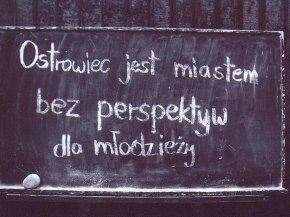 Ostrowiec jest miastem
bez perspektyw
dla młodzieży